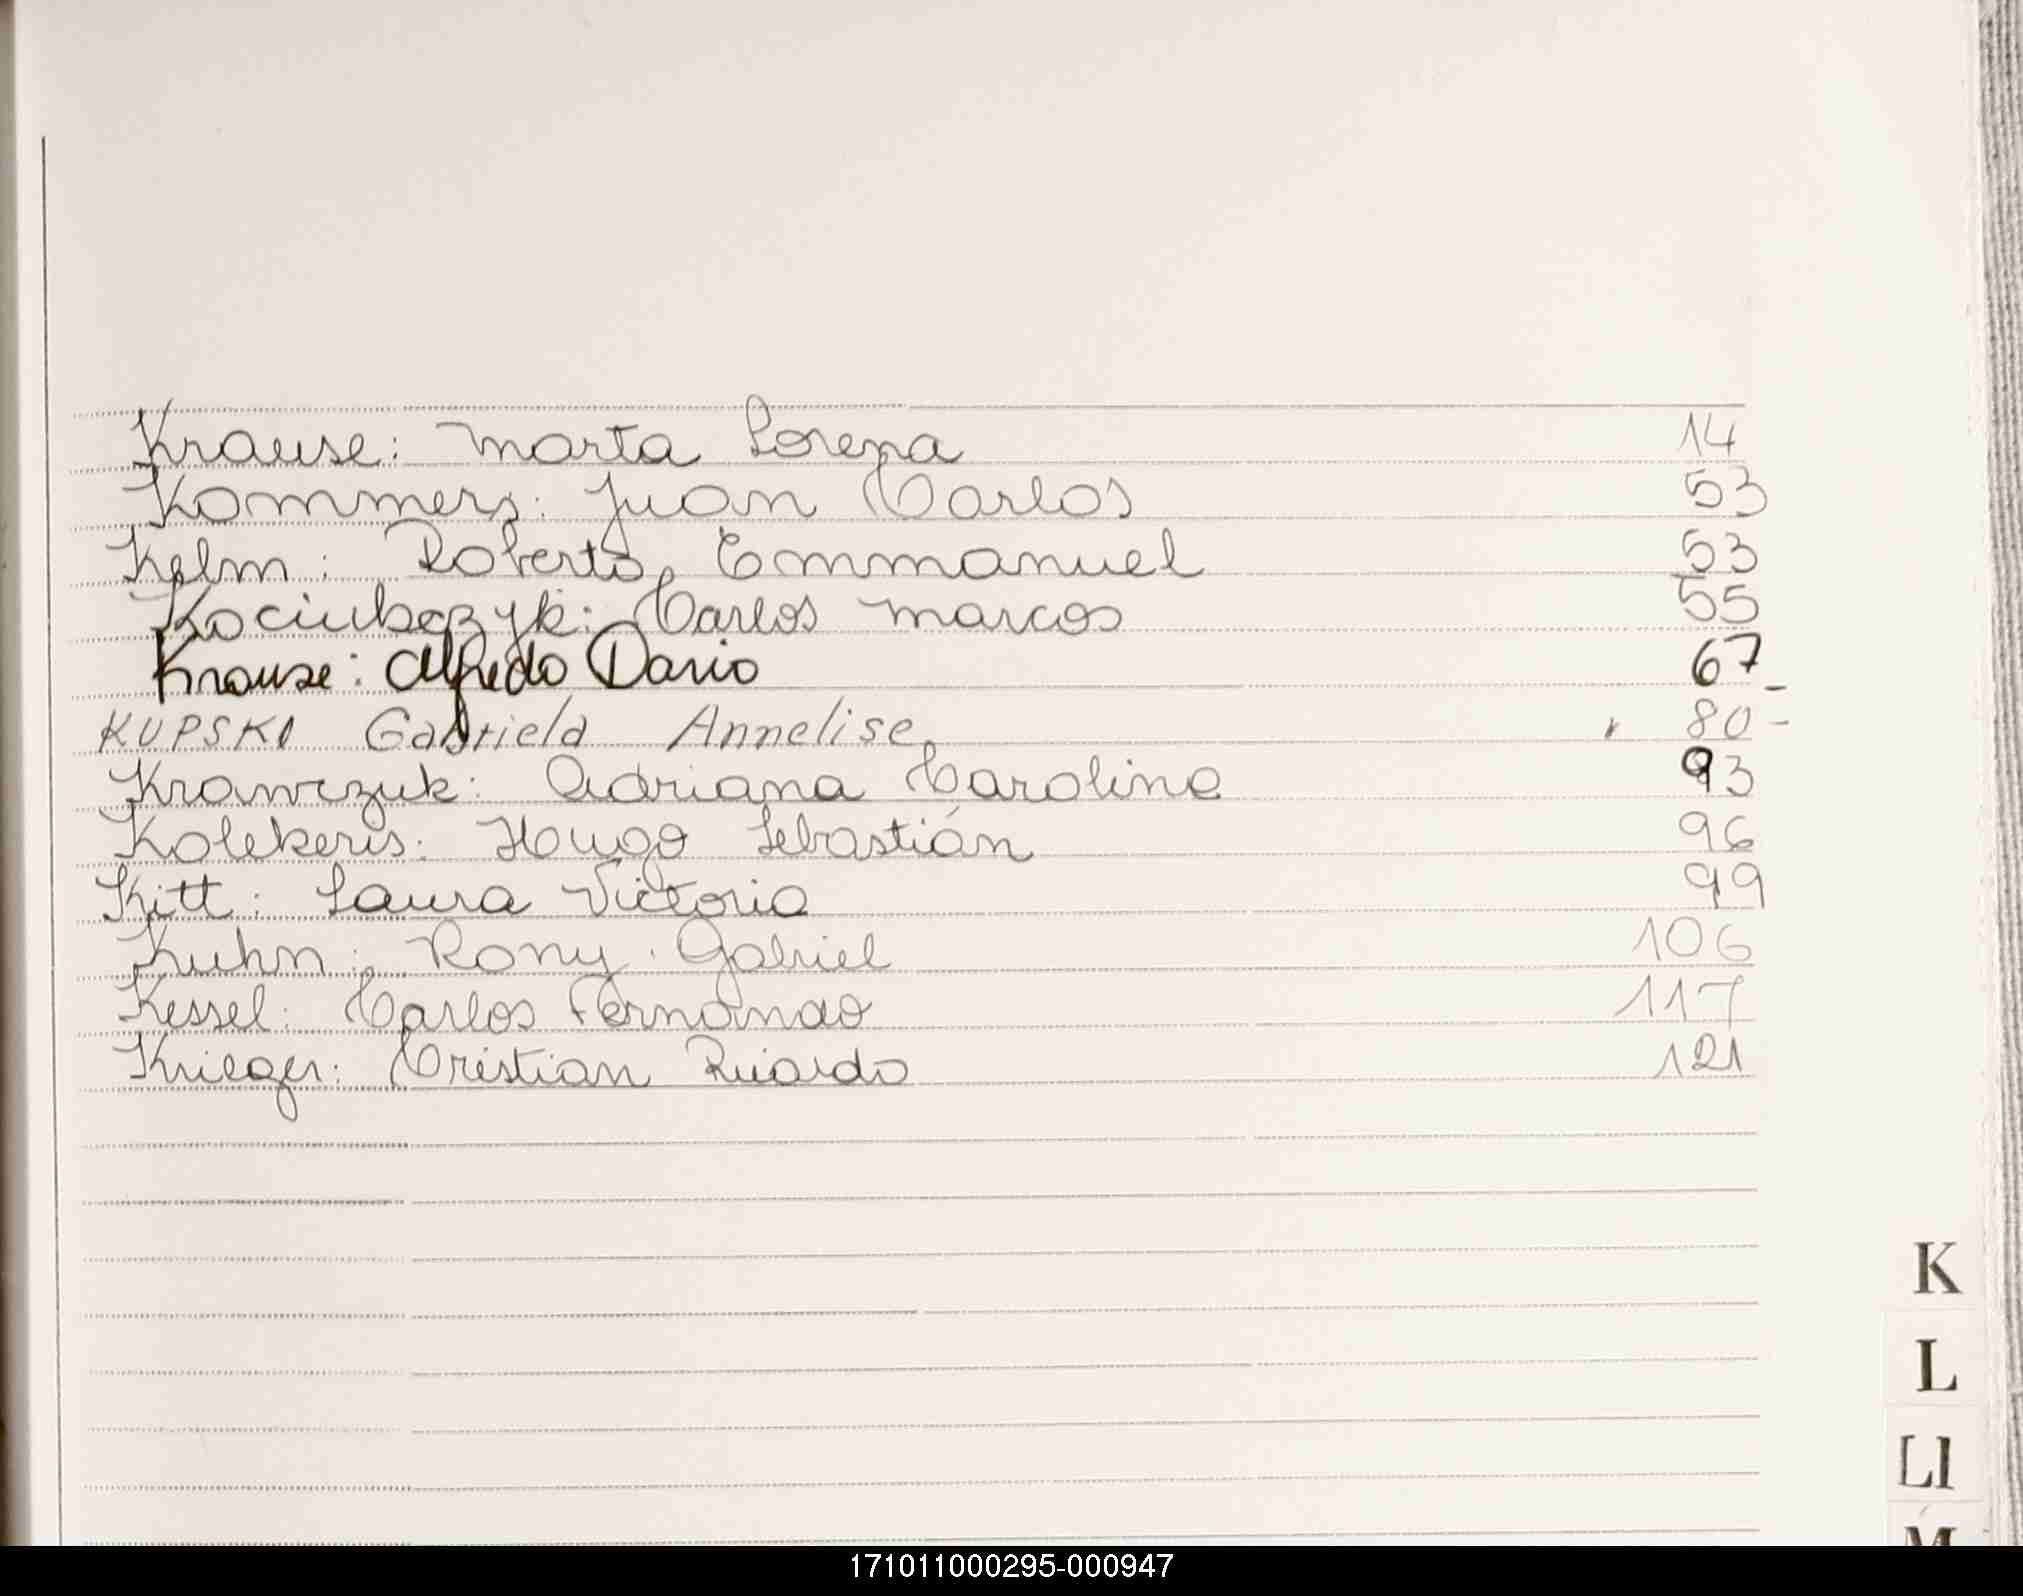 Krause: Marta Lorena 14
Kommers: Juan Carlos 53
Kelm: Roberto Emmanuel 53
Kociubczyk: Carlos Marcos 55
Krause: Alfredo Dario 67
KUPSKI Gabriela Annelise 80
Krawczuk: Adriana Carolina 93
Kolekeris: Hugo Sebastián 96
Kitt: Laura Victoria 99
Kuhn: Rony Gabriel 106
Kessel: Carlos Fernando 117
Krieger: Cristian Ricardo 121
K
L
Ll
M
171011000295-000947